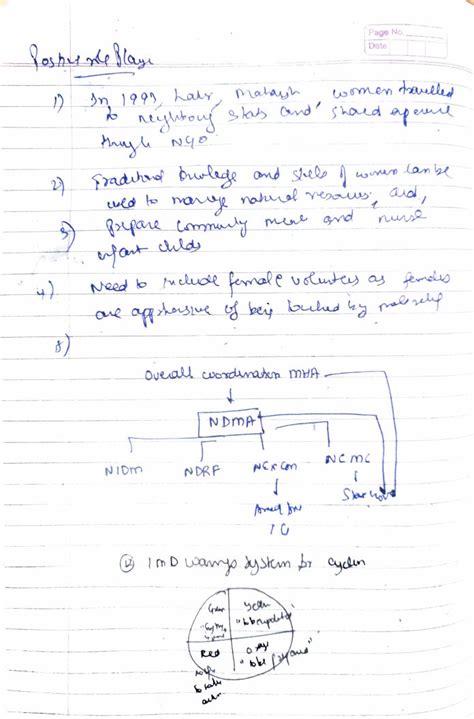 Page No.
Date
Positive role Playe
1) In 1993, Latur, Maharash, women travelled
to neighbouring stats and shared experience
through NGO
2) Traditional knowledge and skills of women can be
used to manage natural resources, aid,
3) prepare community meal and nurse
infant childs
4) Need to include female volunters as females
are apprhensive of being touched by male relief
8)
Overall coordination MHA
NDMA
NIDM NDRF NCMC
State Govt
Armed
IMD warnings System for Cyclon
Green Yellow
"to be updated"
Red
"to be prepared"
to take
actn